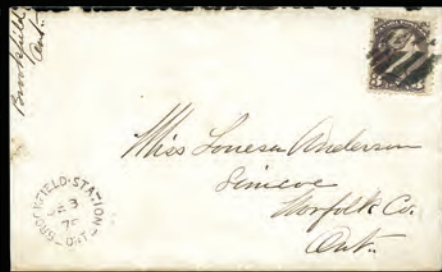 Brookfield
Ont.
Miss Louesa Anderson
Simcoe
Norfolk Co.
Ont.
BROOKFIELD·STATION
3
ONT
3 3